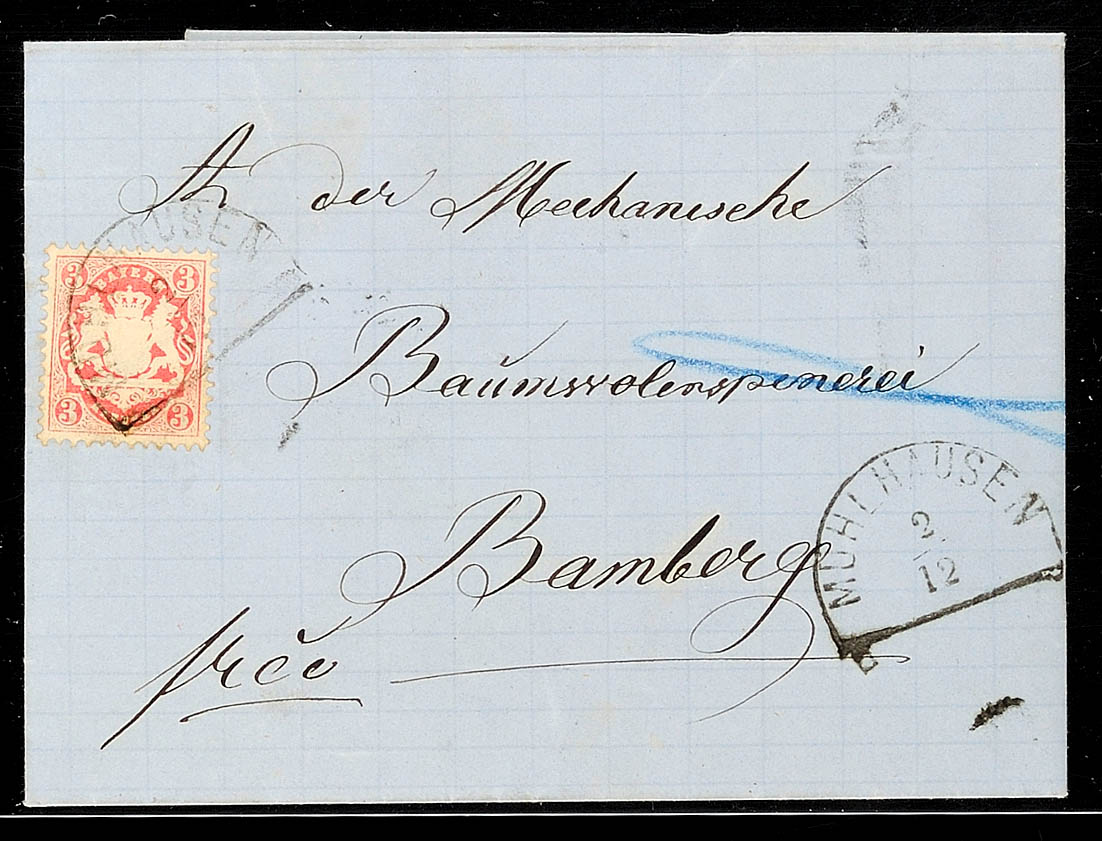 An der Mechanische
HAUSEN
3 BAYERN 3
Baumwolenspenerei
3 3
MÜHLHAUSEN
2
12
Bamberg
frco